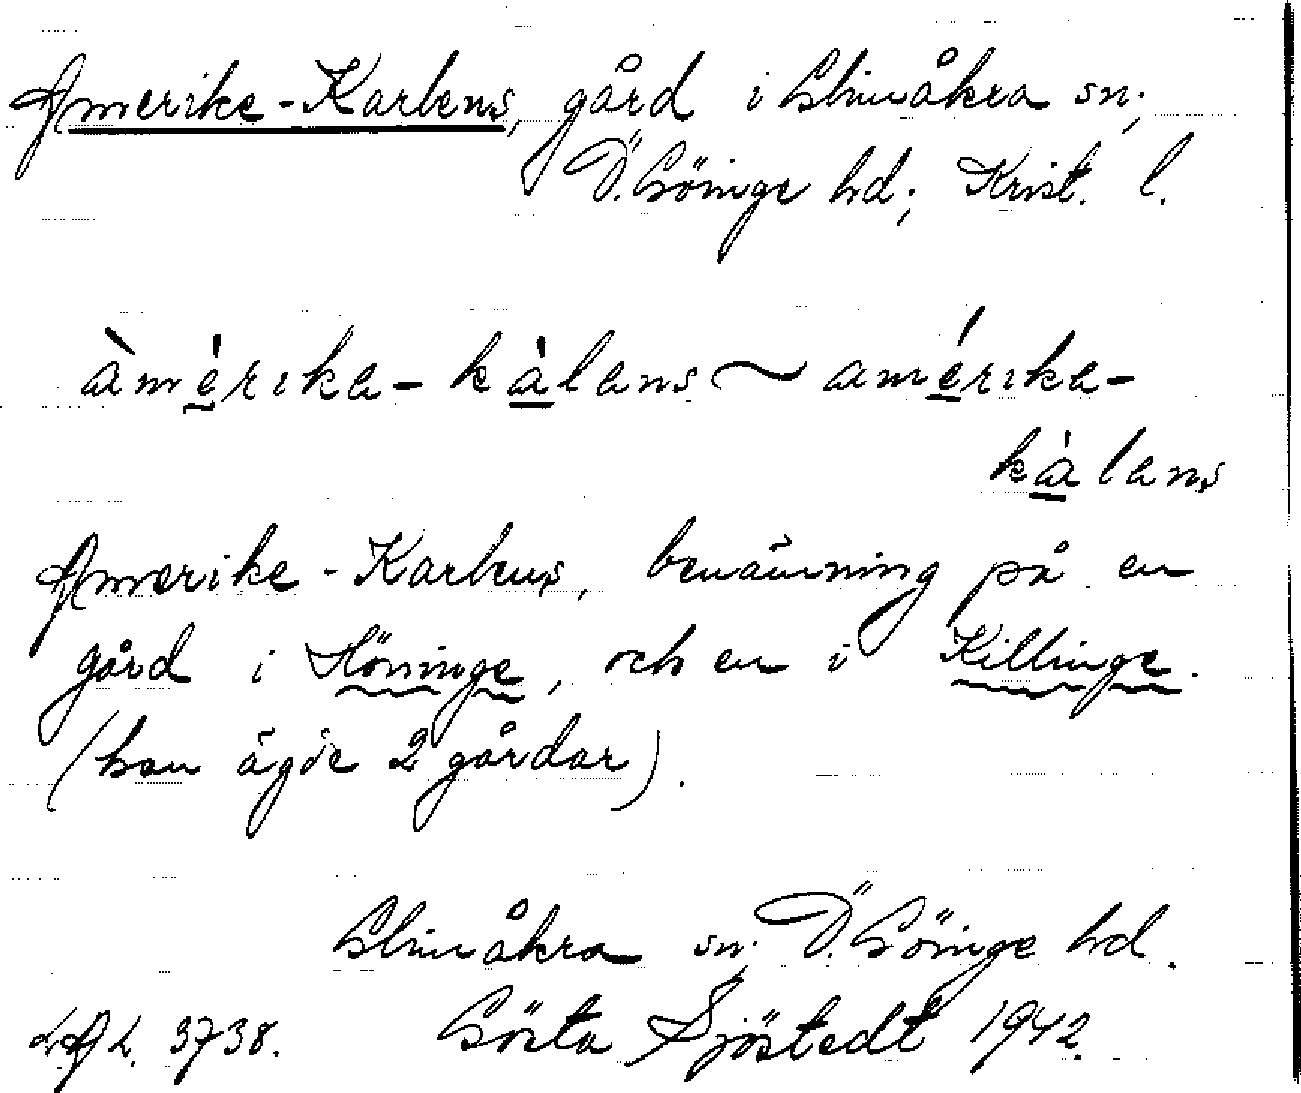 Amerike-Karlens, gård i Glimåkra sn;
Ö. Göinge hd; Krist. l.
àmérika-kàlans ~ amérika-
kàlans
Amerike-Karlens, benämning på en
gård i Höninge, och en i Killinge.
(han ägde 2 gårdar).
Glimåkra sn, Ö. Göinge hd.
LAL. 3738. Gösta Sjöstedt 1942.